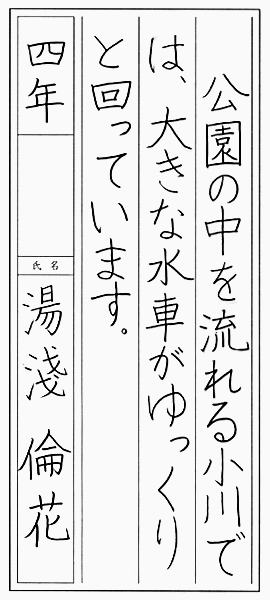 公園の中を流れる小川で
は、大きな水車がゆっくり
と回っています。
四年
氏名
湯淺 倫花